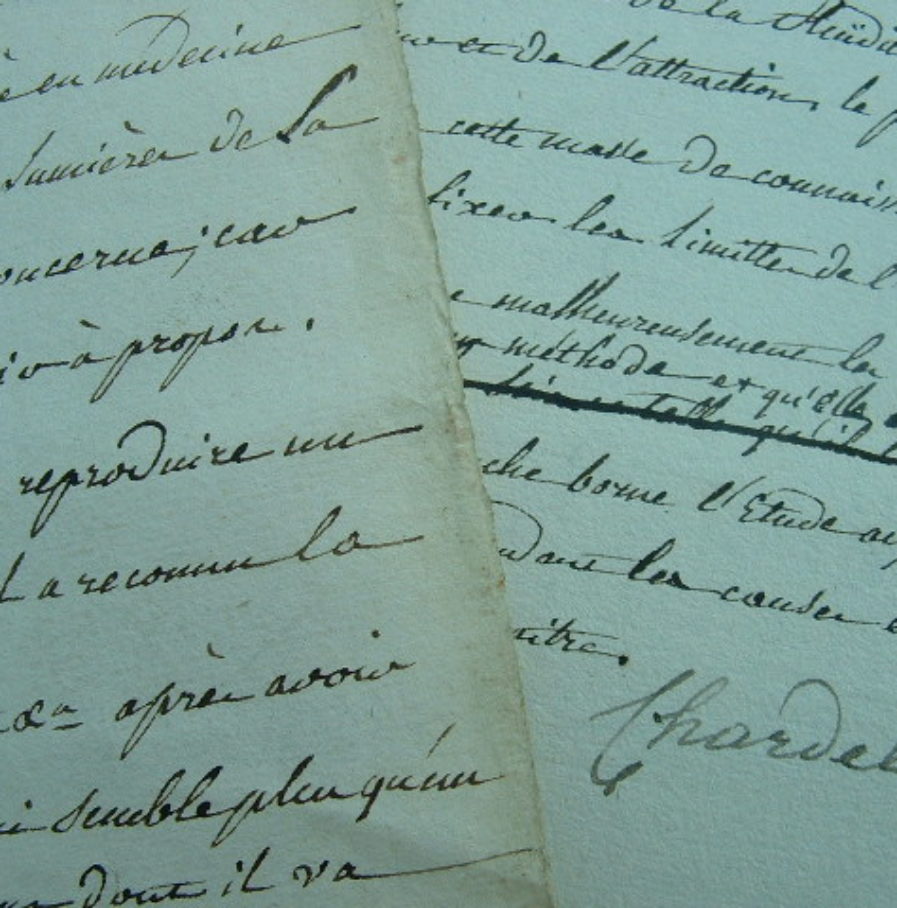 en medecine
lumières de la
concerne ; car
à propos.
reproduire un
a reconnu la
&a après avoir
semble plus qu'un
dont il va
de la fluidi
et de l'attraction, le p
cette masse de connaiss
fixer les limittes de l'
malheureusement les
méthode et qu'elle
telle qu'il
che borne l'Etude au
dant les causes
aitre.
Chardel